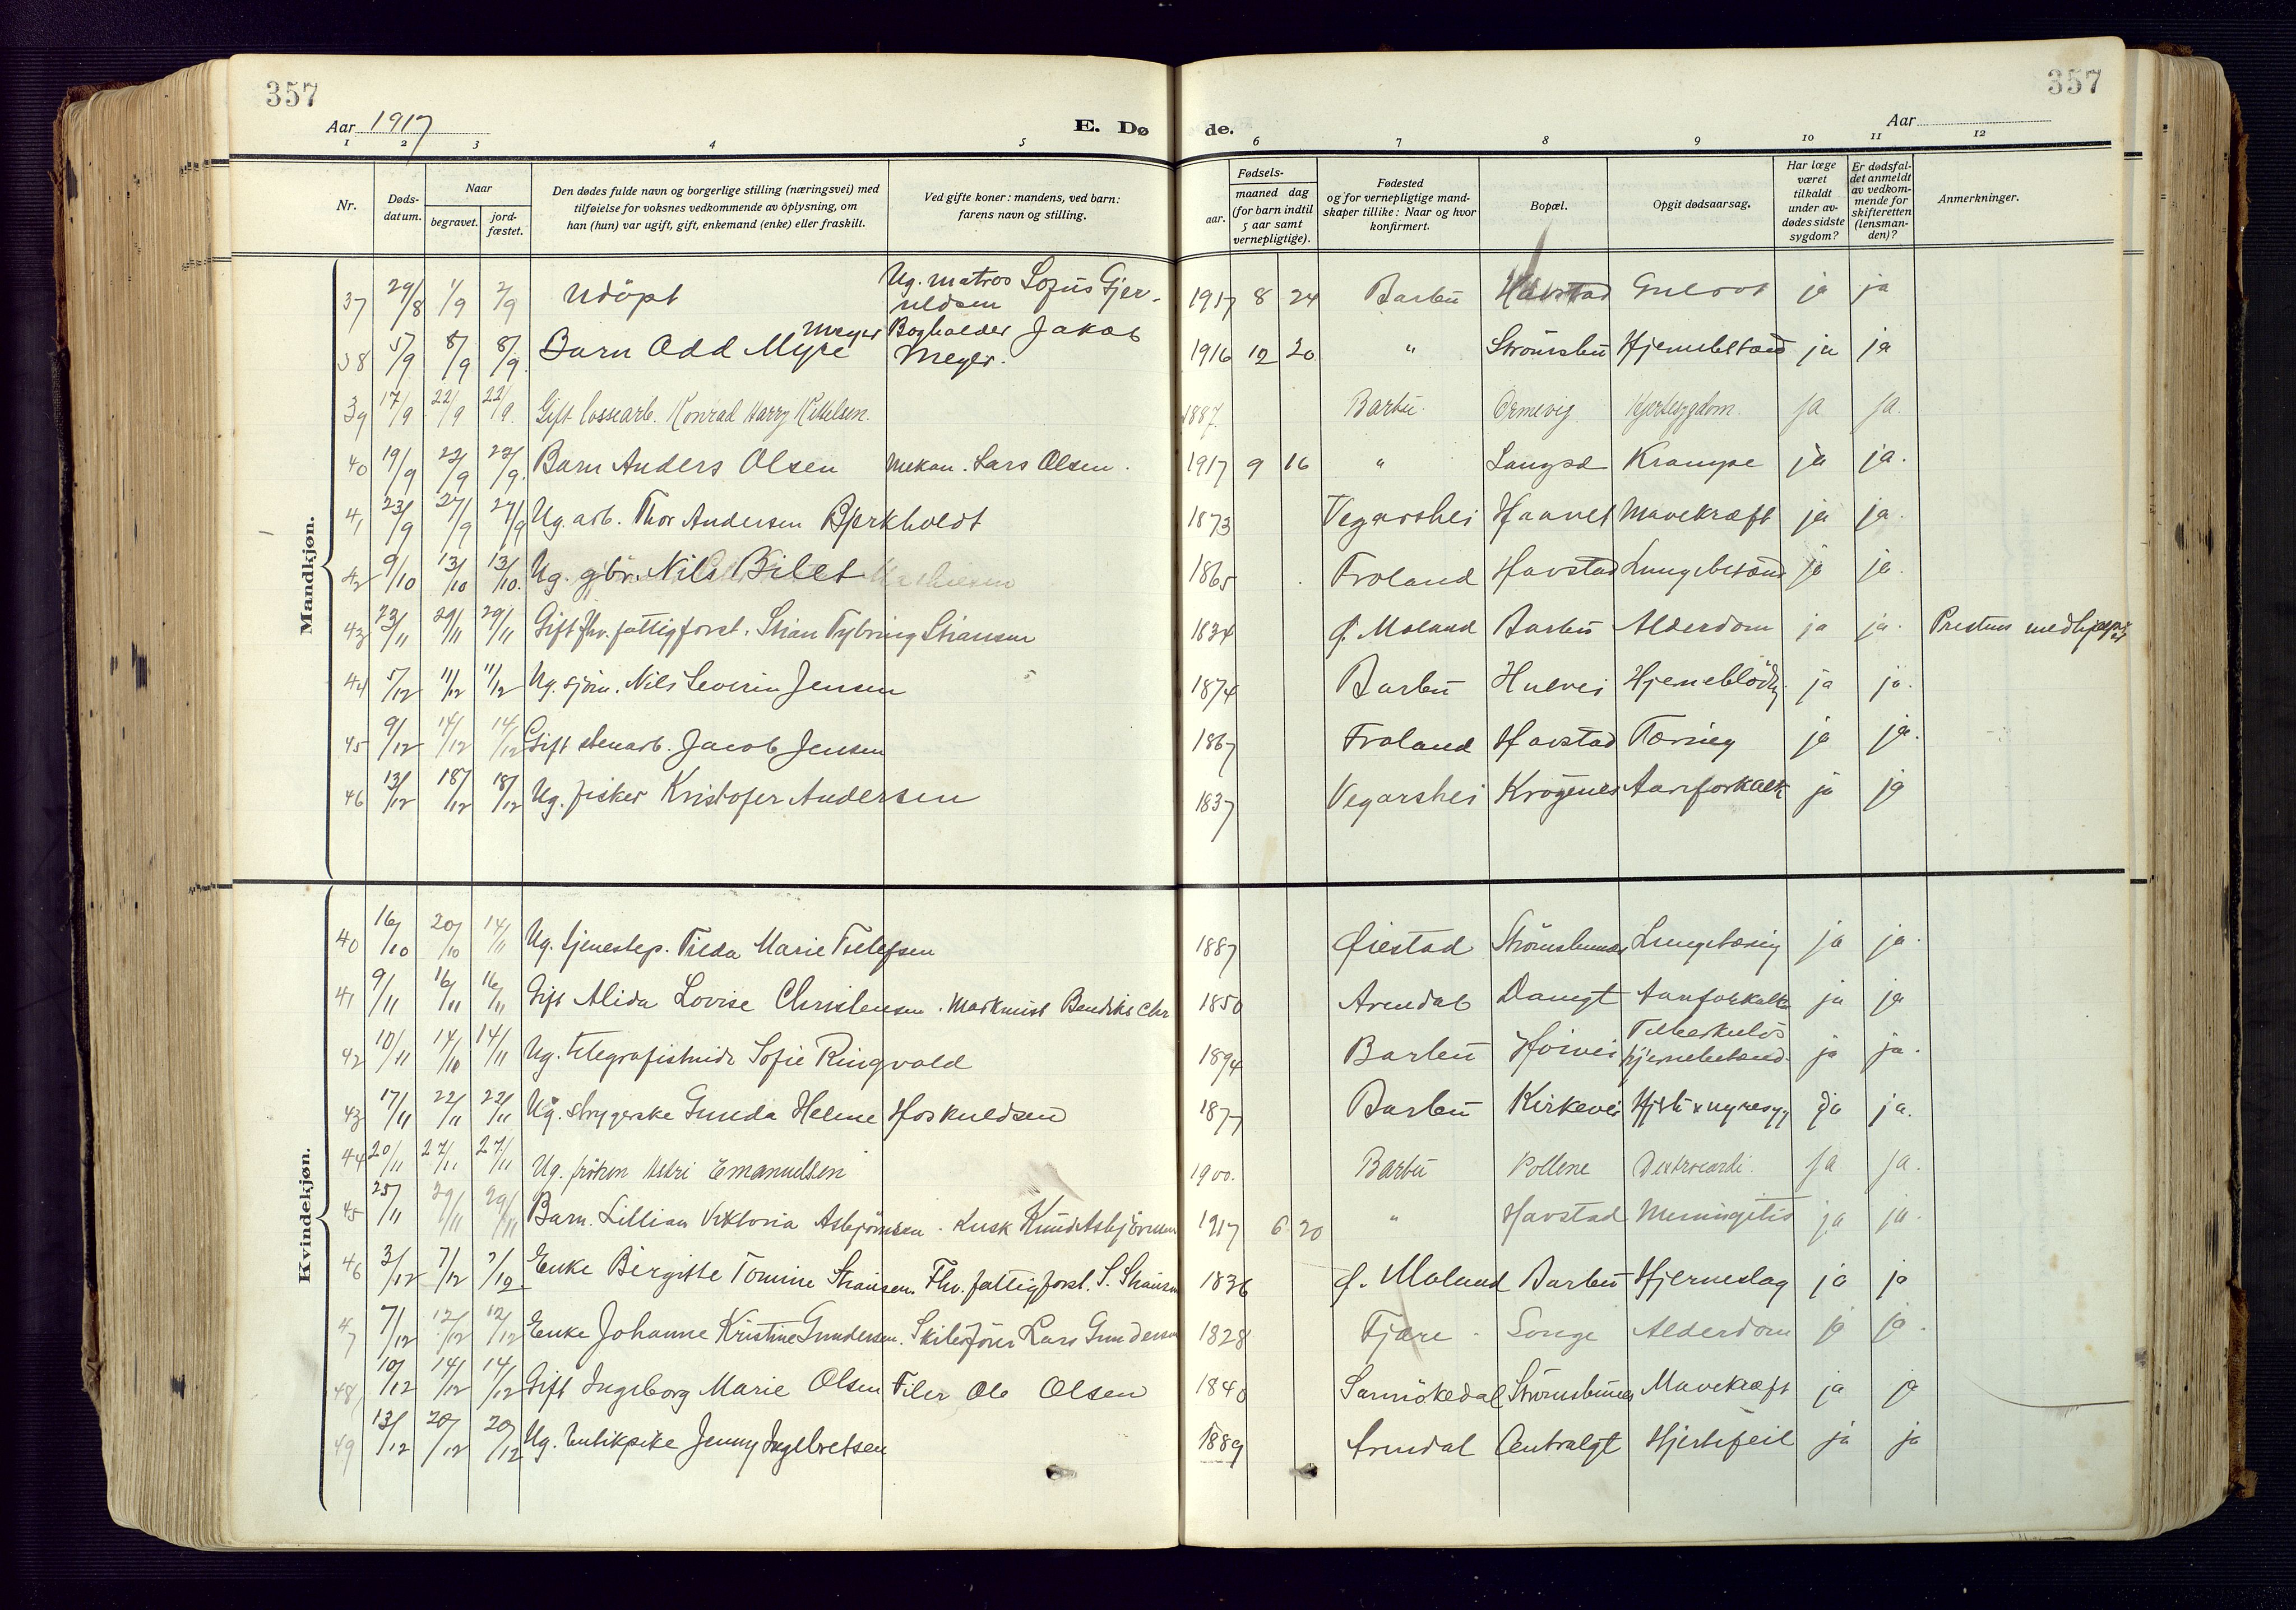 357
357
Aar 1917
E. Dø
de.
Aar
1 2 3 4 5 6 7 8 9 10 11 12
Nr.
Døds-
datum.
Naar
begravet.
jord-
fæstet.
Den dødes fulde navn og borgerlige stilling (næringsvei) med
tilføielse for voksnes vedkommende av oplysning, om
han (hun) var ugift, gift, enkemand (enke) eller fraskilt.
Ved gifte koner: mandens, ved barn:
farens navn og stilling.
Fødsels-
aar.
maaned dag
(for barn indtil
5 aar samt
vernepligtige).
Fødested
og for vernepligtige mand-
skaper tillike: Naar og hvor
konfirmert.
Bopæl.
Opgit dødsaarsag.
Har læge
været
tilkaldt
under av-
dødes sidste
sygdom?
Er dødsfal-
det anmeldt
av vedkom-
mende for
skifteretten
(lensman-
den)?
Anmerkninger.
Mandkjøn.
37 29/8 1/9 2/9 Udöpt Ug. matros Sofus Gjer-
uldsen 1917 8 24 Barbu Havstad Gulsot ja ja
38 5/9 8/9 8/9. Barn Odd Myre Meyer Bogholder Jakob
Meyer. 1916 12 20 " Strömsbu Hjernebetænd ja ja
39 17/9 22/9 22/9. Gift lossearb. Konrad Harry Kittelsen. 1887. Barbu. Ormevig Hjertesygdom. ja ja.
40 19/9 22/9 22/9. Barn Anders Olsen Mekan. Lars Olsen. 1917 9 16 " Langsæ Krampe ja ja.
41 23/9 27/9 27/9 Ug. arb. Thor Andersen Bjorkholdt 1873 Vegarshei Haavet Mavekræft ja ja.
42 9/10 13/10 13/10. Ug. gbr. Nils Bilet 1865 Froland Havstad Lungebetænd ja ja.
43 23/11 29/11 29/11 Gift fhv. fattigforst. Stian Tybring Stiansen 1834 Ø. Moland Barbu Alderdom ja ja. Prestens medhjælper
44 5/12 11/12 11/12 Ug. sjöm. Nils Severin Jensen 1874 Barbu Hulvei Hjerneblödn. ja ja.
45 9/12 14/12 14/12 Gift stenarb. Jacob Jensen 1867 Froland Havstad Tæring ja ja.
46 13/12 18/12 18/12 Ug. fisker Kristofer Andersen 1837 Vegarshei Krögenes Aareforkalk ja ja
Kvindekjøn.
40 16/10 20/10 14/11 Ug. tjenestep. Tilda Marie Tellefsen 1887 Øiestad Strömsbunes Lungetæring ja ja.
41 9/11 16/11 16/11 Gift Alida Lovise Christensen. Maskinist Bendiks Chr 1850 Arendal Damgt Aareforkalkn ja ja
42 10/11 14/10 14/11 Ug. telegrafistinde Sofie Ringvold 1894 Barbu Höivei Tuberkulös
hjernebetænd. ja ja.
43 17/11 22/11 22/11 Ug. strygerske Gunda Helene Hoskuldsen 1877 Barbu Kirkevei Hjerte & nyresyg ja ja.
44 20/11 27/11 27/11 Ug. fröken Astri Emanuelsen 1900. Barbu Pollene Dextrocardi. ja ja.
45 25/11 29/11 29/11 Barn. Lillian Viktoria Asbjörnsen. Kusk Knud Asbjörnsen 1917 6 20 " Havstad Meningitis ja ja.
46 3/12 7/12 7/12 Enke Birgitte Tomine Stiansen. Fhv. fattigforst. S. Stiansen 1836 Ø. Moland Barbu Hjerneslag ja ja
47 7/12 12/12 12/12 Enke Johanne Kristine Gundersen. Skibsförer Lars Gundersen 1828 Fjære. Songe Alderdom ja ja.
48 10/12 14/12 14/12 Gift Ingeborg Marie Olsen Filer Ole Olsen 1840 Sannökedal Strömsbunes Mavekræft ja ja
49 13/12 20/12 20/12 Ug. butikpike Jenny Ingebretsen 1889 Arendal Centralgt Hjertefeil ja ja